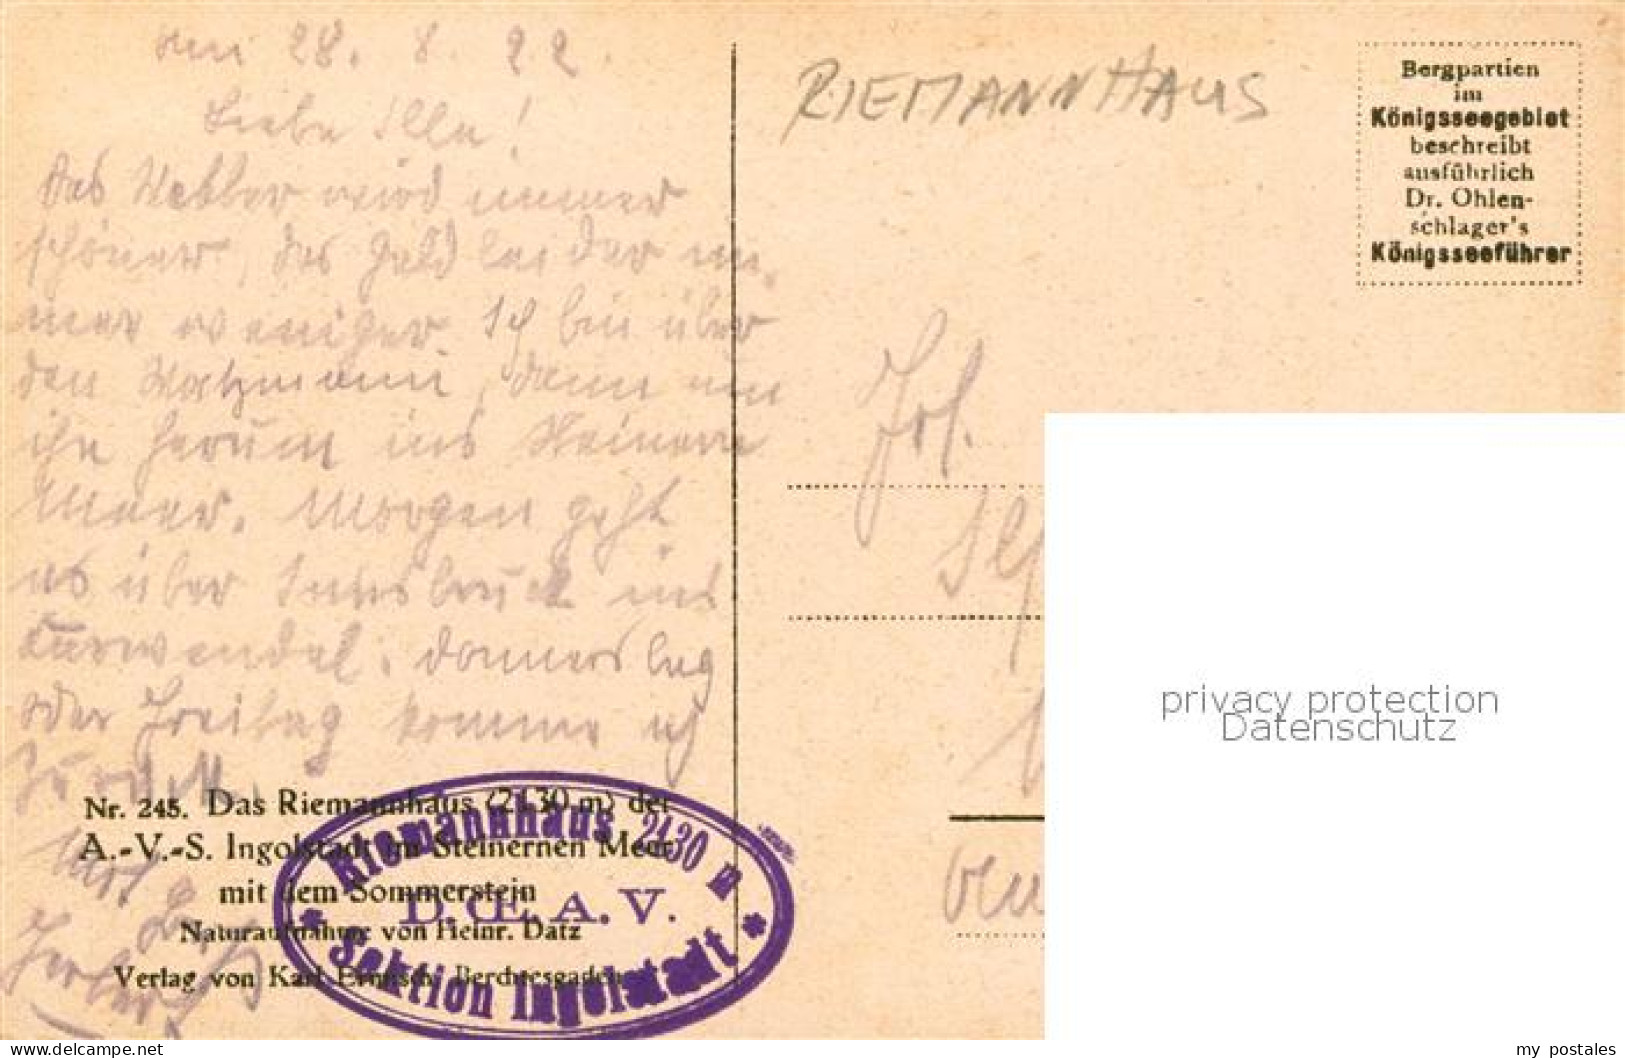 28. 8. 22.
Liebe Illa!
Das Wetter wird immer
schöner, das Geld leider im-
mer weniger. Ich bin über
den Watzmann, dann um
ihn herum ins Steinerne
Meer. Morgen geht
es über Innsbruck ins
Karwendel. Donnerstag
oder Freitag komme ich
zurück.
Herbert
Nr. 245. Das Riemannhaus (2130 m) der
A.-V.-S. Ingolstadt im Steinernen Meer
mit dem Sommerstein
Naturaufnahme von Heinr. Datz
Verlag von Karl Ermisch, Berchtesgaden
Riemannhaus 2130 m
D. Œ. A. V.
* Sektion Ingolstadt *
RIEMANNHAUS
Bergpartien
im
Königsseegebiet
beschreibt
ausführlich
Dr. Ohlen-
schlager's
Königsseeführer
Frl.
privacy protection
Datenschutz
www.delcampe.net
my_postales